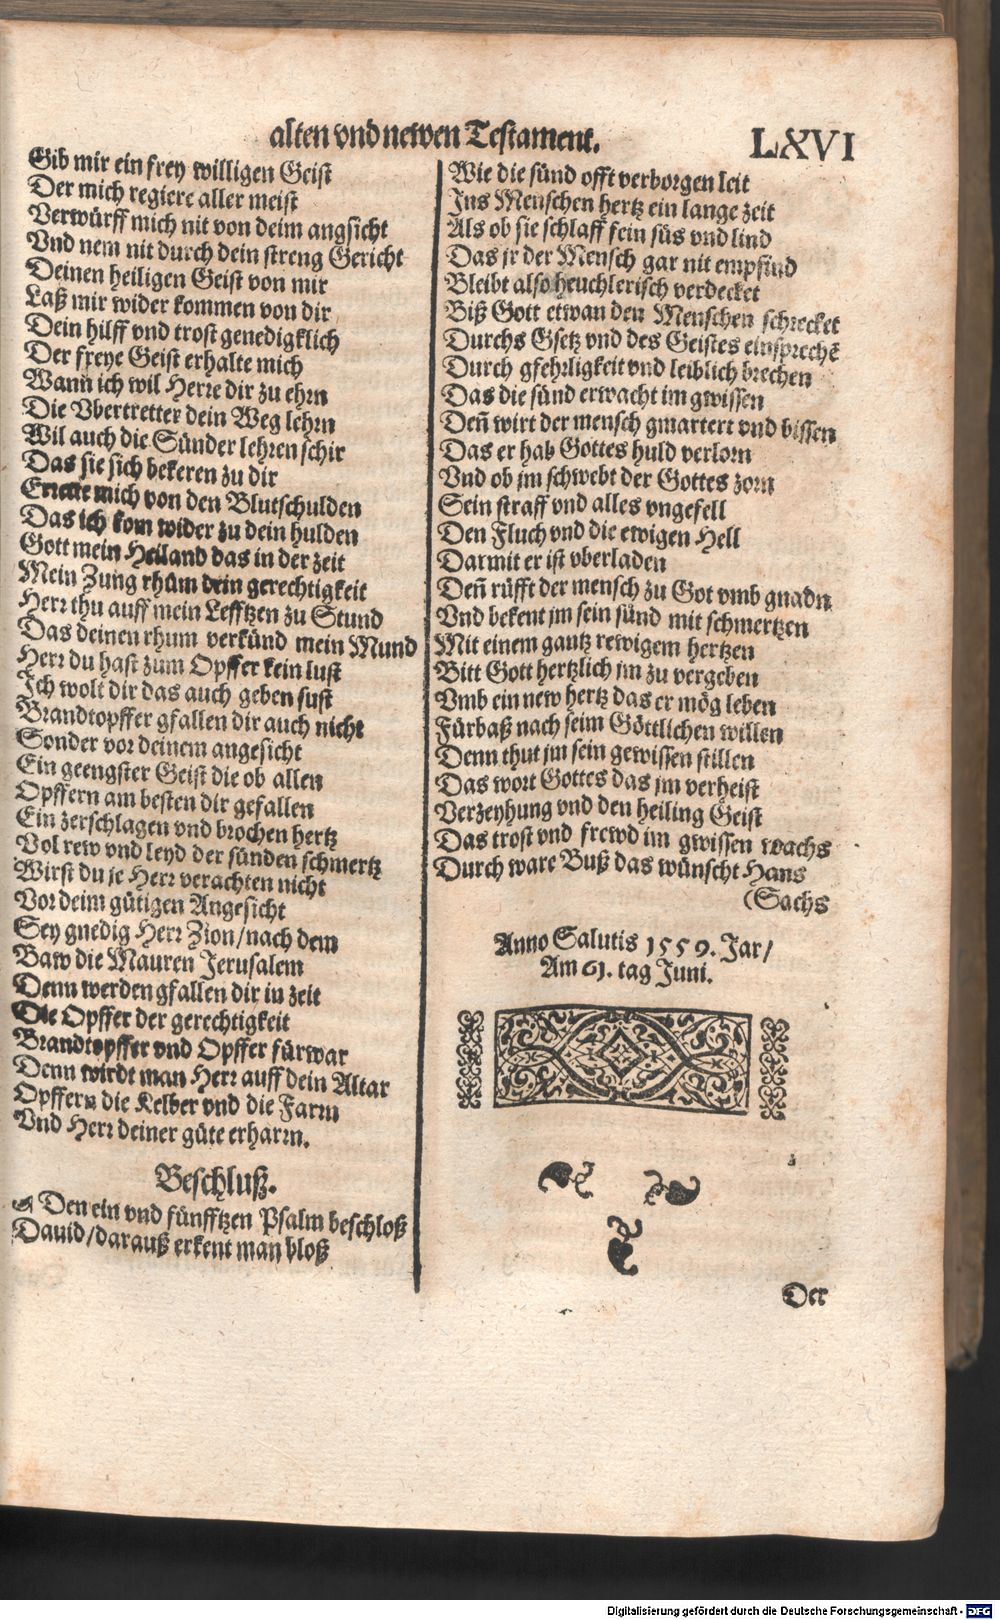 alten vnd newen Testament.
LXVI
Gib mir ein frey willigen Geist
Der mich regiere aller meist
Verwürff mich nit von deim angsicht
Vnd nem nit durch dein streng Gericht
Deinen heiligen Geist von mir
Laß mir wider kommen von dir
Dein hilff vnd trost genedigklich
Der freye Geist erhalte mich
Wann ich wil Herre dir zu ehrn
Die Vbertretter dein Weg lehrn
Wil auch die Sünder lehren schir
Das sie sich bekeren zu dir
Errette mich von den Blutschulden
Das ich kom wider zu dein hulden
Gott mein Heiland das in der zeit
Mein Zung rhüm dein gerechtigkeit
Herr thu auff mein Lefftzen zu Stund
Das deinen rhum verkünd mein Mund
Herr du hast zum Opffer kein lust
Ich wolt dir das auch geben sust
Brandtopffer gfallen dir auch nicht
Sonder vor deinem angesicht
Ein geengster Geist die ob allen
Opffern am besten dir gefallen
Ein zerschlagen vnd brochen hertz
Vol rew vnd leyd der sünden schmertz
Wirst du je Herr verachten nicht
Vor deim gütigen Angesicht
Sey gnedig Herr Zion/nach dem
Baw die Mauren Jerusalem
Denn werden gfallen dir in zeit
Die Opffer der gerechtigkeit
Brandtopffer vnd Opffer fürwar
Denn wirdt man Herr auff dein Altar
Opffern die Kelber vnd die Farrn
Vnd Herr deiner güte erharrn.
Beschluß.
Den ein vnd fünfftzen Psalm beschloß
Dauid/darauß erkent man bloß
Wie die sünd offt verborgen leit
Ins Menschen hertz ein lange zeit
Als ob sie schlaff fein süs vnd lind
Das jr der Mensch gar nit empfind
Bleibt also heuchlerisch verdecket
Biß Gott etwan den Menschen schrecket
Durchs Gsetz vnd des Geistes einsprechē
Durch gfehrligkeit vnd leiblich brechen
Das die sünd erwacht im gwissen
Deñ wirt der mensch gmartert vnd bissen
Das er hab Gottes huld verlorn
Vnd ob jm schwebt der Gottes zorn
Sein straff vnd alles vngefell
Den Fluch vnd die ewigen Hell
Darmit er ist vberladen
Deñ rüfft der mensch zu Got vmb gnadn
Vnd bekent jm sein sünd mit schmertzen
Mit einem gantz rewigem hertzen
Bitt Gott hertzlich jm zu vergeben
Vmb ein new hertz das er mög leben
Fürbaß nach seim Göttlichen willen
Denn thut jm sein gewissen stillen
Das wort Gottes das jm verheist
Verzeyhung vnd den heiling Geist
Das trost vnd frewd im gwissen wachs
Durch ware Buß das wünscht Hans
(Sachs
Anno Salutis 1559. Jar/
Am 61. tag Juni.
Der
Digitalisierung gefördert durch die Deutsche Forschungsgemeinschaft - DFG